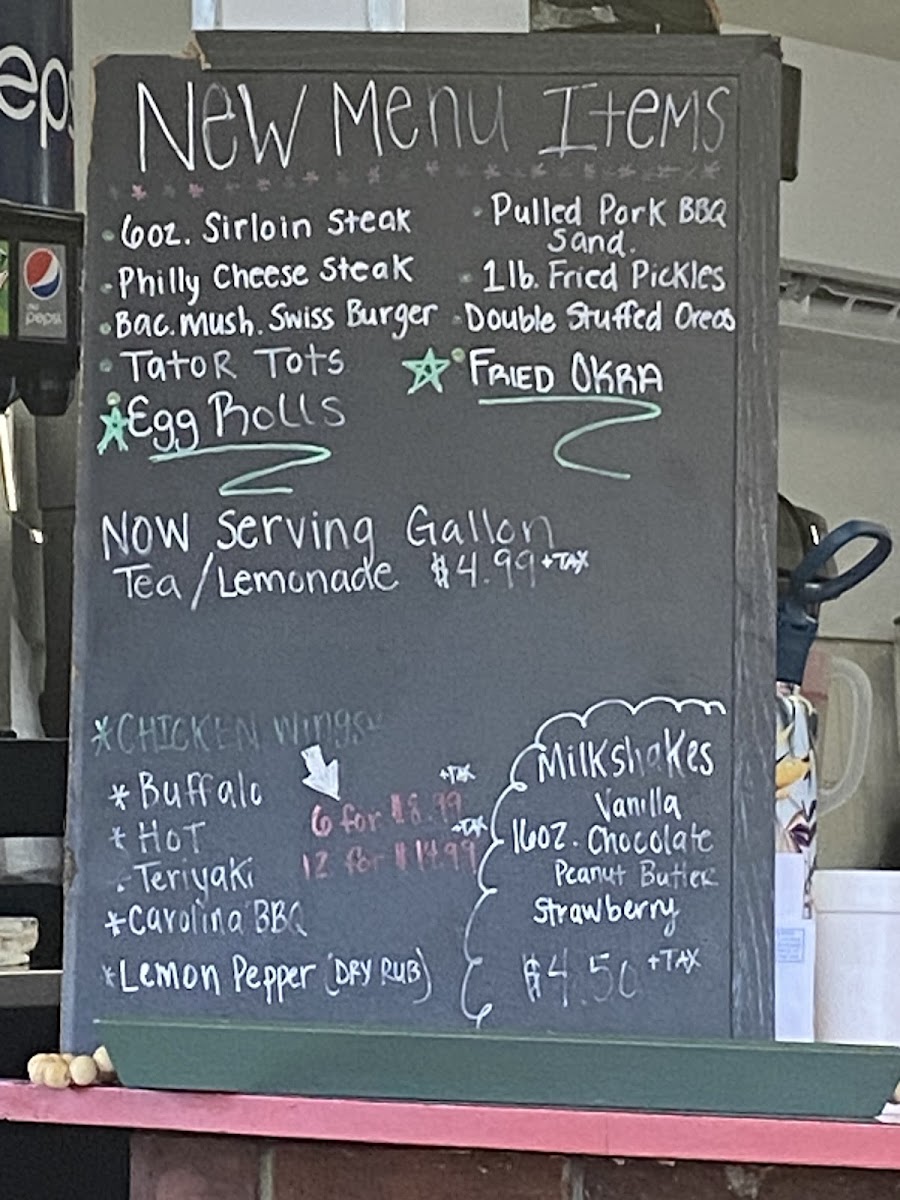 ep
pepsi
New Menu Items
• 6oz. Sirloin Steak
• Philly Cheese Steak
• Bac. Mush. Swiss Burger
• Tator Tots
Egg Rolls
• Pulled Pork BBQ
Sand.
• 1lb. Fried Pickles
• Double Stuffed Oreos
• Fried Okra
Now Serving Gallon
Tea/Lemonade $4.99 +TAX
*Chicken Wings
* Buffalo
* Hot
Teriyaki
*Carolina BBQ
*Lemon Pepper (DRY RUB)
6 for $8.99 +TAX
12 for $14.99 +TAX
Milkshakes
Vanilla
16oz. Chocolate
Peanut Butter
Strawberry
$4.50 +TAX